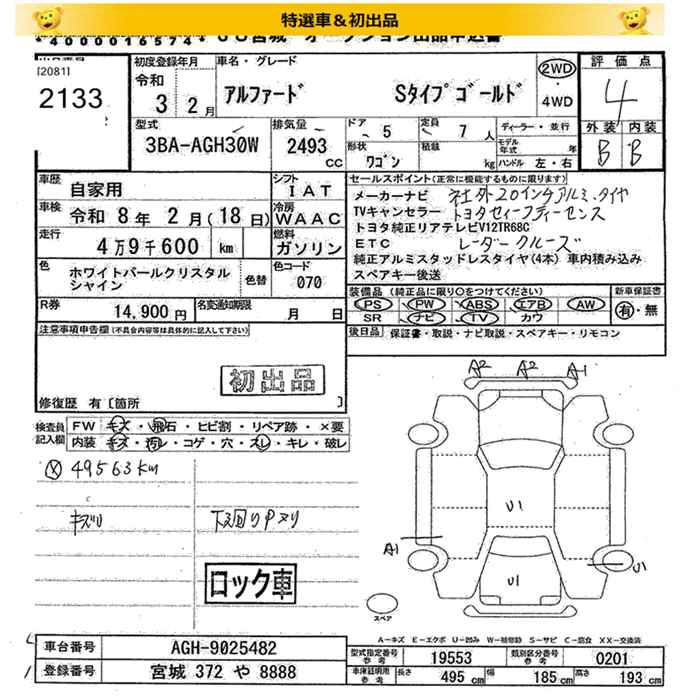 特選車＆初出品
*4000016574* UU宮城 オークション出品申込書
[2081]
2133
初度登録年月
令和
3 2月
車名・グレード
アルファード Sタイプゴールド
2WD
・
4WD
評価点
4
外装 内装
B B
型式
3BA-AGH30W
排気量
2493
cc
ドア 5
定員 7 人
ディーラー・並行
形状
ワゴン
積載
kg
モデル年式 年
ハンドル 左・右
車歴
自家用
シフト
IAT
車検
令和 8年 2月(18日)
冷房
WAAC
走行
4万9千600 km
燃料
ガソリン
色
ホワイトパールクリスタル
シャイン
色替
色コード
070
R券
14,900 円
名変通知期限
月 日
セールスポイント(正常に機能するものに限ります)
メーカーナビ 社外20インチアルミ、タイヤ
TVキャンセラー トヨタセーフティーセンス
トヨタ純正リアテレビV12TR68C
ETC レーダークルーズ
純正アルミスタッドレスタイヤ(4本) 車内積み込み
スペアキー後送
装備品 (純正品に限り○をつけてください)
PS PW ABS エアB AW
SR ナビ TV カワ
新車保証書
有・無
後日品 保証書・取説・ナビ取説・スペアキー・リモコン
注意事項申告欄(不具合内容等は具体的に記入して下さい)
初出品
修復歴 有〔箇所 〕
検査員
記入欄
FW キズ・飛石・ヒビ割・リペア跡・×要
内装 キズ・汚レ・コゲ・穴・スレ・キレ・破レ
メ 49563km
キズU 下廻りPヌリ
ロック車
A2 A2 A1
U1
A1
U1
U1
スペア
A－キズ E－エクボ U－凹み W－補修跡 S－サビ C－腐食 XX－交換済
車台番号 AGH-9025482
登録番号 宮城 372 や 8888
型式指定番号
参考
19553
類別区分番号
参考
0201
車庫証明記入欄
参考
長さ 495 cm 幅 185 cm 高さ 193 cm